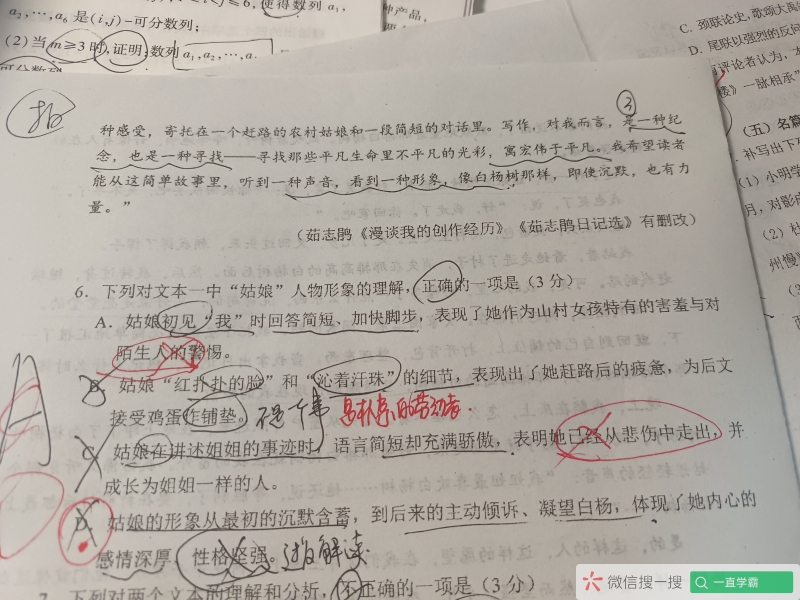 ≤6, 使得数列 a₁,
a₂,…,a₆ 是(i,j)-可分数列;
(2)当m≥3时,证明:数列a₁,a₂,…,a.
种产品,
C. 颈联论史,歌颂大禹
D. 尾联以强烈的反问
评论者认为,本
》一脉相承”
(五)名篇
补写出下列
(1)小明学
月,对影成
(2)杜
州慢》
③
种感受,寄托在一个赶路的农村姑娘和一段简短的对话里。写作,对我而言,是一种纪
念,也是一种寻找——寻找那些平凡生命里不平凡的光彩,寓宏伟于平凡。我希望读者
能从这简单故事里,听到一种声音,看到一种形象,像白杨树那样,即使沉默,也有力
量。”
(茹志鹃《漫谈我的创作经历》《茹志鹃日记选》有删改)
6. 下列对文本一中“姑娘”人物形象的理解,正确的一项是(3分)
A. 姑娘初见“我”时回答简短、加快脚步,表现了她作为山村女孩特有的害羞与对
陌生人的警惕。
B. 姑娘“红扑扑的脸”和“沁着汗珠”的细节,表现出了她赶路后的疲惫,为后文
接受鸡蛋作铺垫。不是一个事 是朴素的劳动者.
C. 姑娘在讲述姐姐的事迹时,语言简短却充满骄傲,表明她已经从悲伤中走出,并
成长为姐姐一样的人。
D. 姑娘的形象从最初的沉默含蓄,到后来的主动倾诉、凝望白杨,体现了她内心的
感情深厚、性格坚强。过度解读
7. 下列对两个文本的理解和分析,不正确的一项是(3分)
微信搜一搜
一直学霸